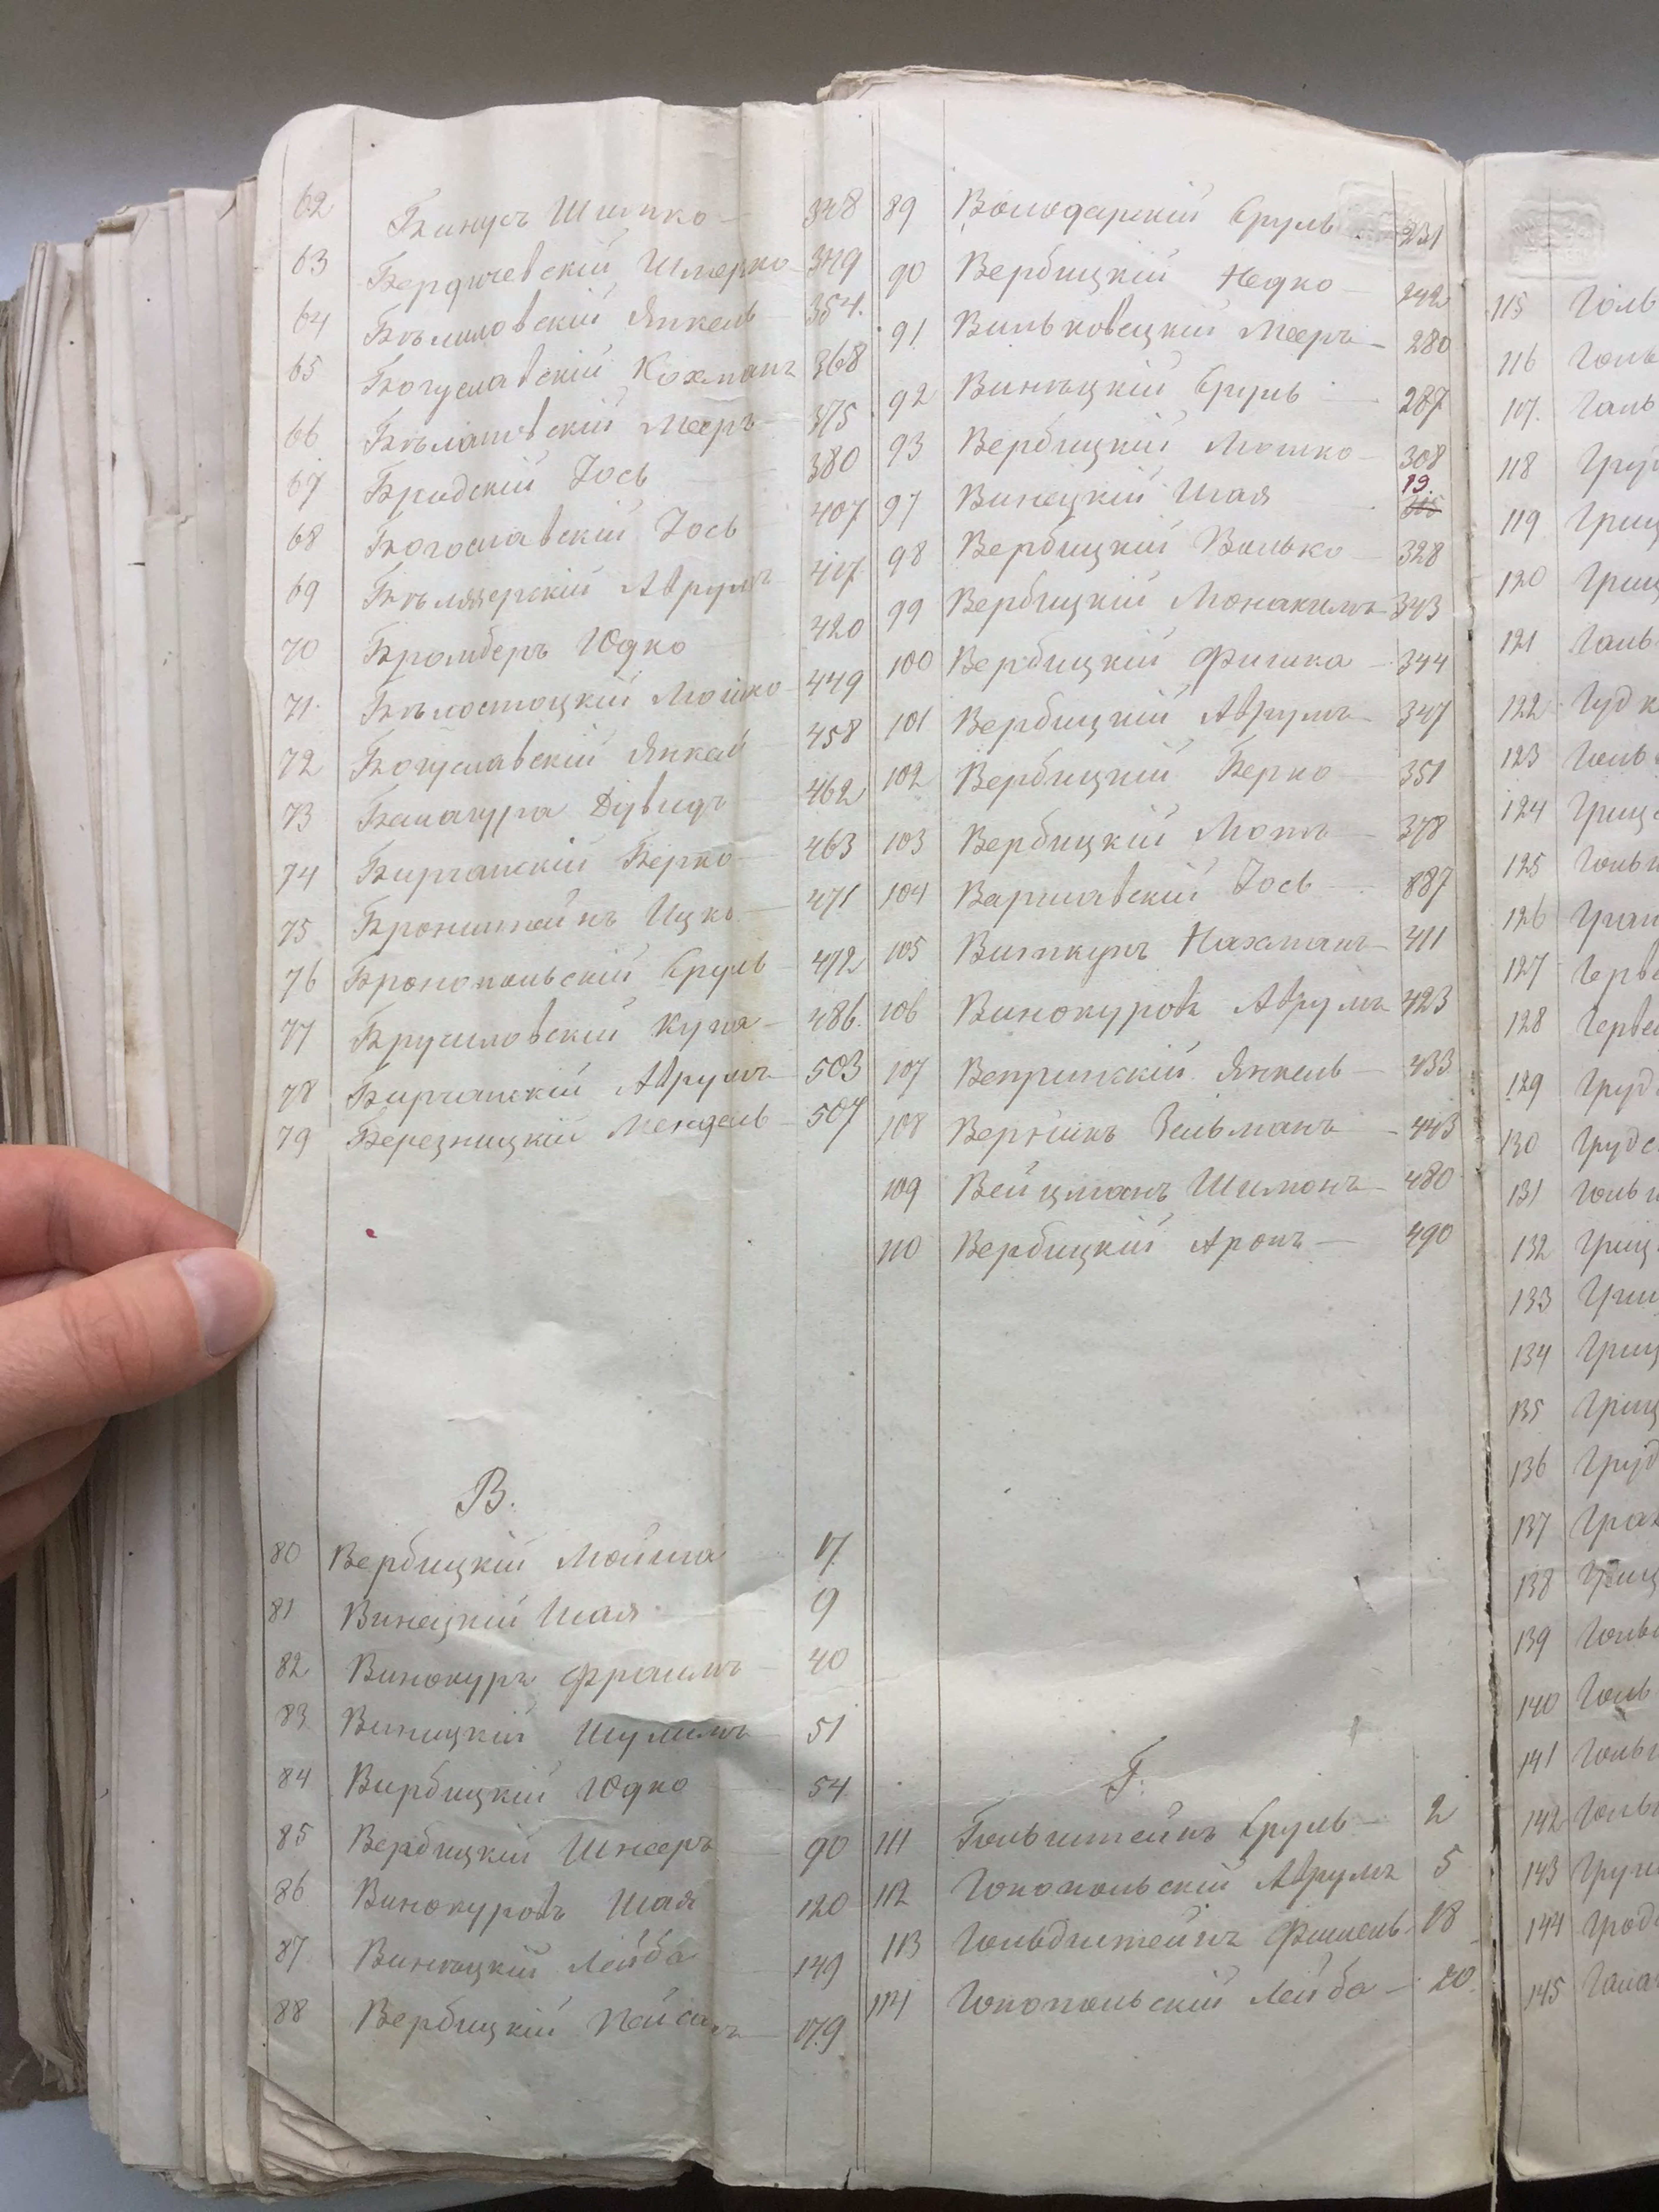 62 Бинусъ Шимко 348
63 Бердичевскій Шмерко 349
64 Бѣлиловскій Янкель 354.
65 Богуславскій Кохманъ 368
66 Бѣлиловскій Мееръ 375
67 Бродскій Іось 380
68 Богославскій Іось 407
69 Бѣлязерскій Аврумъ 417
70 Бромберъ Юдко 420
71 Бѣлостоцкій Мошко 449
72 Богуславскій Янкель 458
73 Балагура Дувидъ 462
74 Бирчанскій Берко 463
75 Бронштейнъ Ицко 471
76 Бронопольскій Сруль 472
76 Бронопольскій 
77 Бручиловскій 486.
78 Бирчанскій Аврумъ 503
79 Березницкій Мендель 507
В.
80 Вербицкій Мойша 17
81 Винецкій Шая 9
82 Винокуръ Фроимъ 40
83 Виницкій Шулимъ 51
84 Вирбицкій Юдко 54
85 Вербицкій Шнееръ 90
86 Винокуровъ Шая 120
87 Винѣцкій Лейба 149
88 Вербицкій Пейсахъ 179
89 Володарскій Сруль 231
90 Вербицкій Недко 242
91 Вильковецкій Мееръ 280
92 Винѣцкій Сруль 287
93 Вербицкій Мошко 308
97 Винецкій Шая 19.
98 Вербицкій Волько 328
99 Вербицкій Монахимъ 343
100 Вербицкій Фишка 344
101 Вербицкій Аврумъ 347
102 Вербицкій Берко 351
103 Вербицкій 378
104 Варшавскій Іось 887
105 Виткупъ Нахманъ 411
106 Винокуровъ Аврумъ 423
107 Вепринскій Янкель 433
108 Верникъ Зельманъ 443
109 Вейцманъ Шимонъ 480
110 Вербицкій Аронъ 490
Г.
111 Гольштейнъ Сруль 2
112 Гонопольскій Аврумъ 5
113 Гольдштейнъ Фишель 18
114 Гонопольскій Лейба 20
115 Голь
116 Голь
117. Галь
118
119 Гриц
120 Гриц
121 Галь
122 Гудк
123 Голь
124
125 Гольк
126 Гран
127
128
129 Груд
130
131
132 Гриц
133
134 Гриц
135 Гриц
136 Груд
137
138 Гриц
139
140 Голь
141
142
143
144
145